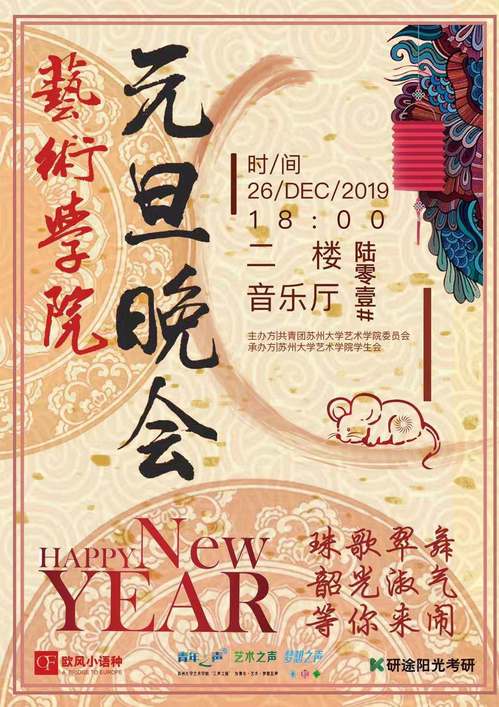 元旦晚会
藝術學院
时/间
26/DEC/2019
18:00
二楼
音乐厅
陆零壹#
主办方|共青团苏州大学艺术学院委员会
承办方|苏州大学艺术学院学生会
HAPPY New
YEAR
珠歌翠舞
韶光淑气
等你来闹
欧风小语种
A BRIDGE TO EUROPE
青年之声
艺术之声
梦想之声
研途阳光考研